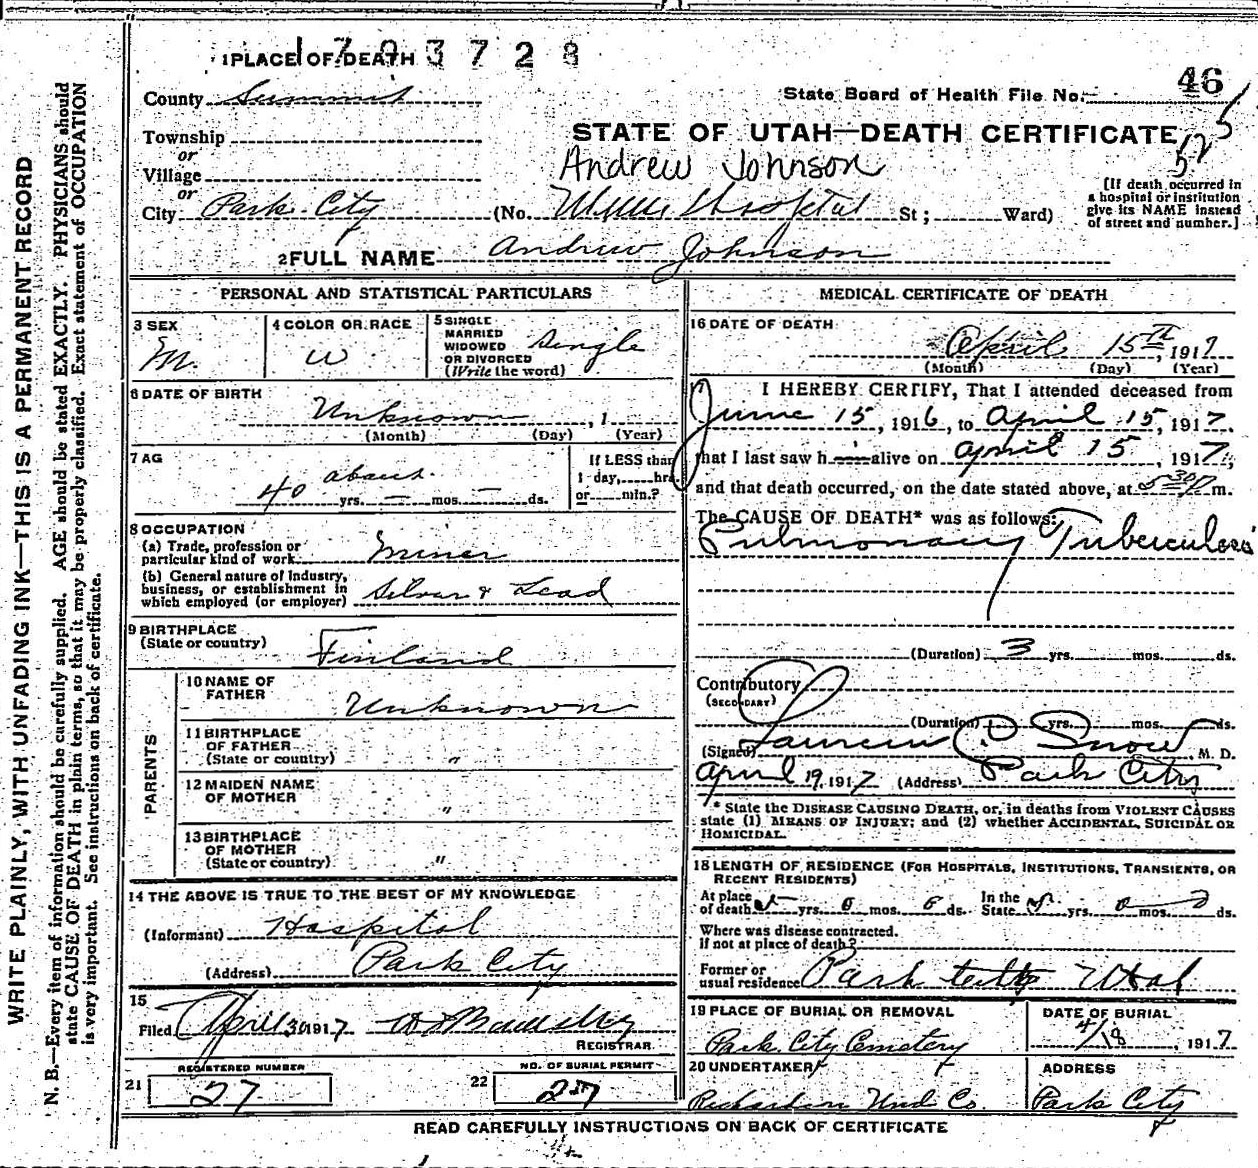 1703728
1 PLACE OF DEATH
46
County Summit
State Board of Health File No.
Township
STATE OF UTAH—DEATH CERTIFICATE
525
or
Village
Andrew Johnson
or
City Park City (No. Miners Hospital St; Ward)
[If death occurred in
a hospital or institution
give its NAME instead
of street and number.]
2 FULL NAME Andrew Johnson
PERSONAL AND STATISTICAL PARTICULARS
3 SEX
M.
4 COLOR OR RACE
W
5 SINGLE
MARRIED
WIDOWED
OR DIVORCED
(Write the word)
Single
6 DATE OF BIRTH
Unknown, 1
(Month) (Day) (Year)
7 AG
about
40 yrs. — mos. — ds.
If LESS than
1 day, hrs
or min.?
8 OCCUPATION
(a) Trade, profession or
particular kind of work Miner
(b) General nature of Industry,
business, or establishment in
which employed (or employer) Silver & Lead
9 BIRTHPLACE
(State or country) Finland
PARENTS
10 NAME OF
FATHER Unknown
11 BIRTHPLACE
OF FATHER
(State or country) "
12 MAIDEN NAME
OF MOTHER "
13 BIRTHPLACE
OF MOTHER
(State or country) "
14 THE ABOVE IS TRUE TO THE BEST OF MY KNOWLEDGE
(Informant) Hospital
(Address) Park City
15
Filed April 30 1917
REGISTRAR
21 REGISTERED NUMBER
27
22 NO. OF BURIAL PERMIT
27
MEDICAL CERTIFICATE OF DEATH
16 DATE OF DEATH
April 15th, 1917
(Month) (Day) (Year)
17 I HEREBY CERTIFY, That I attended deceased from
June 15, 1916, to April 15, 1917,
that I last saw h alive on April 15, 1917,
and that death occurred, on the date stated above, at 5 30 P m.
The CAUSE OF DEATH* was as follows:
Pulmonary Tuberculosis
(Duration) 3 yrs. mos. ds.
Contributory
(SECONDARY)
(Duration) yrs. mos. ds.
(Signed) P Snow, M. D.
April 19, 1917 (Address) Park City
* State the DISEASE CAUSING DEATH, or, in deaths from VIOLENT CAUSES
state (1) MEANS OF INJURY; and (2) whether ACCIDENTAL, SUICIDAL OR
HOMICIDAL.
18 LENGTH OF RESIDENCE (FOR HOSPITALS, INSTITUTIONS, TRANSIENTS, OR
RECENT RESIDENTS)
At place
of death yrs. 0 mos. ds. In the
State yrs. 0 mos. ds.
Where was disease contracted.
If not at place of death?
Former or
usual residence Park City Utah
19 PLACE OF BURIAL OR REMOVAL
Park City Cemetery
DATE OF BURIAL
4/18, 1917
20 UNDERTAKER
Richardson Und Co.
ADDRESS
Park City
READ CAREFULLY INSTRUCTIONS ON BACK OF CERTIFICATE
WRITE PLAINLY, WITH UNFADING INK—THIS IS A PERMANENT RECORD
N. B.—Every item of information should be carefully supplied. AGE should be stated EXACTLY. PHYSICIANS should
state CAUSE OF DEATH in plain terms, so that it may be properly classified. Exact statement of OCCUPATION
is very important. See instructions on back of certificate.